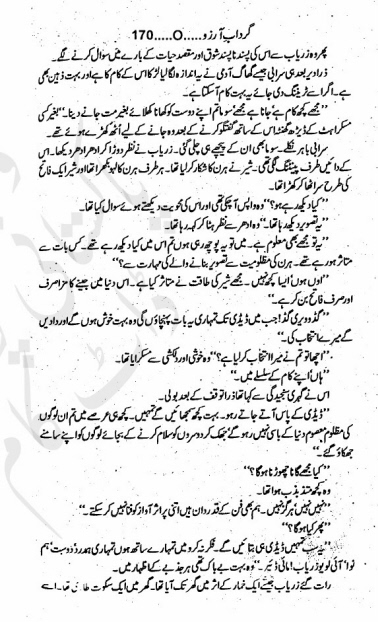 گرداب آرزو.....O.....170
پھر وہ زریاب سے اس کی پسند ناپسند شوق اور مقصد حیات کے بارے میں سوال کرنے لگے۔
ذرا دیر بعد ہی سرابی جیسے گھاگ آدمی نے یہ اندازہ لگا لیا لڑکا اس کے کام کا ہے اور بہت ذہین بھی
ہے۔ اگر اسے ٹریننگ دی جائے یہ بہت کام آ سکتا ہے۔
''مجھے کچھ کام ہے' جانا ہے مجھے' سوما تم اپنے دوست کو کھانا کھلائے بغیر مت جانے دینا۔'' بغیر کسی
مسکراہٹ کے ڈیڑھ گھنٹہ اس کے ساتھ گفتگو کرنے کے بعد وہ جانے کے لیے اٹھ کھڑے ہوئے تھے۔
سرابی باہر نکلے۔ سوما بھی ان کے پیچھے ہی چلی گئی۔ زریاب نے نظر دوڑا کر ادھر ادھر دیکھا۔ اس
کے دائیں طرف پینٹنگ لگی تھی۔ شیر نے ہرن کا شکار کر لیا تھا۔ ہر طرف ہرن کا لہو بکھرا تھا اور شیر ایک فاتح
کی طرح سر اٹھا کر کھڑا تھا۔
''کیا دیکھ رہے ہو؟'' وہ واپس آ چکی تھی اور اس کی محویت دیکھتے ہوئے سوال کیا تھا۔
''یہ تصویر دیکھ رہا تھا۔'' وہ ادھر سے نظر ہٹا کر کہہ رہا تھا۔
''یہ تو مجھے بھی معلوم ہے۔ میں تو یہ پوچھ رہی ہوں تم اس میں کیا دیکھ رہے تھے۔ کس بات سے
متاثر ہو رہے تھے۔ ہرن کی مظلومیت سے تصویر بنانے والے کی مہارت سے؟''
''اوں ہوں ایسا کچھ نہیں۔ مجھے شیر کی طاقت نے متاثر کیا ہے۔ اس دنیا میں جینے کا مزا صرف
اور صرف فاتح بن کر ہے۔''
''گڈ ویری گڈ! جب میں ڈیڈی تک تمہاری یہ بات پہنچاؤں گی وہ بہت خوش ہوں گے اور داد دیں
گے میرے انتخاب کی۔''
''اچھا تو تم نے میرا انتخاب کر لیا ہے؟'' وہ خوشی اور دلکشی سے مسکرایا تھا۔
''ہاں' اپنے کام کے سلسلے میں۔''
اس نے گہری سنجیدگی سے کہا تھا ذرا توقف کے بعد بولی۔
''ڈیڈی کے پاس آتے جاتے رہو۔ بہت کچھ سمجھائیں گے تمہیں۔ کچھ ہی عرصے میں تم ان لوگوں
کی مظلوم' معصوم دنیا کے باسی نہیں رہو گے' جھک کر دوسروں کو سلام کرنے کے بجائے لوگوں کو اپنے سامنے
جھکاؤ گے۔''
''کیا مجھے گانا چھوڑنا ہوگا؟''
وہ کچھ متذبذب ہوا تھا۔
''نہیں نہیں' ہرگز نہیں۔ ہم بھی فن کے قدر دان ہیں اتنی پر اثر آواز کو فنا نہیں کر سکتے۔''
''پھر کیا ہوگا؟''
''یہ سب تمہیں ڈیڈی ہی بتائیں گے۔ فکر نہ کرو میں تمہارے ساتھ ہوں تمہاری ہمدرد' دوست' ہم
نوا' آئی لو یو زریاب! مائی ڈئیر۔'' وہ بہت بے باک تھی ہر جذبے کے اظہار میں۔
رات گئے زریاب جیسے ایک خمار کے اثر میں گھر تک آیا تھا۔ گھر میں ایک سکوت طاری تھا۔ اسے